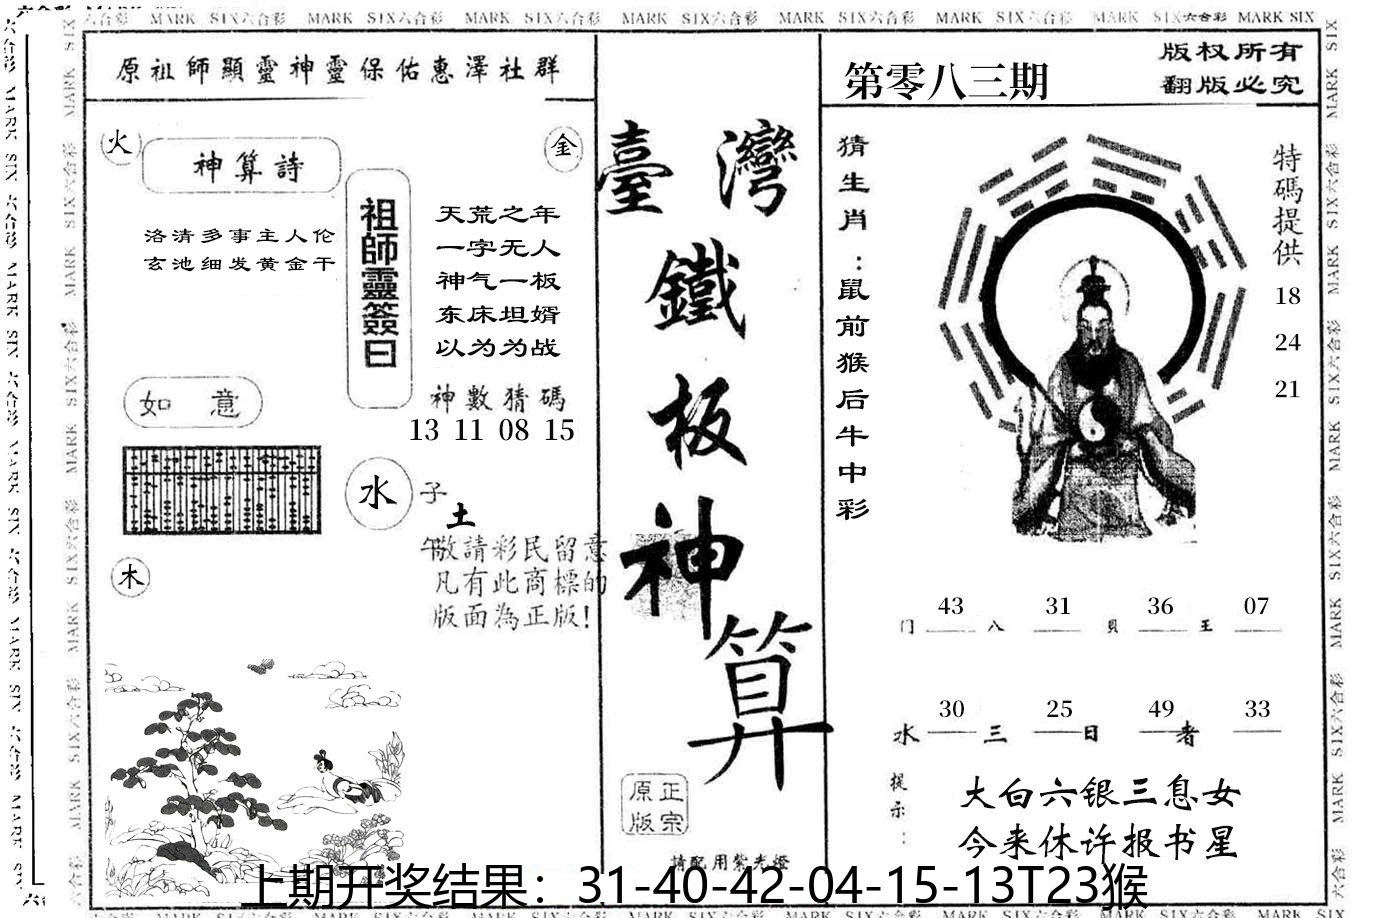 六合彩 MARK SIX六合彩 MARK SIX六合彩 MARK SIX六合彩 MARK SIX六合彩 MARK SIX六合彩 MARK SIX六合彩 MARK SIX六合彩 MARK SIX
原祖師顯靈神靈保佑惠澤社群
火
金
神算詩
洛清多事主人伦
玄池细发黄金干
祖師靈簽曰
天荒之年
一字无人
神气一板
东床坦婿
以为为战
神數猜碼
13 11 08 15
如意
水
子
土
午
木
敬請彩民留意
凡有此商標的
版面為正版!
臺灣
鐵
板
神
算
正宗
原版
請配用紫光燈
第零八三期
版权所有
翻版必究
猜生肖：鼠前猴后牛中彩
特碼提供
18
24
21
43 31 36 07
门 八 贝 王
30 25 49 33
水 三 日 者
提示：
大白六银三息女
今来休许报书星
上期开奖结果：31-40-42-04-15-13T23猴